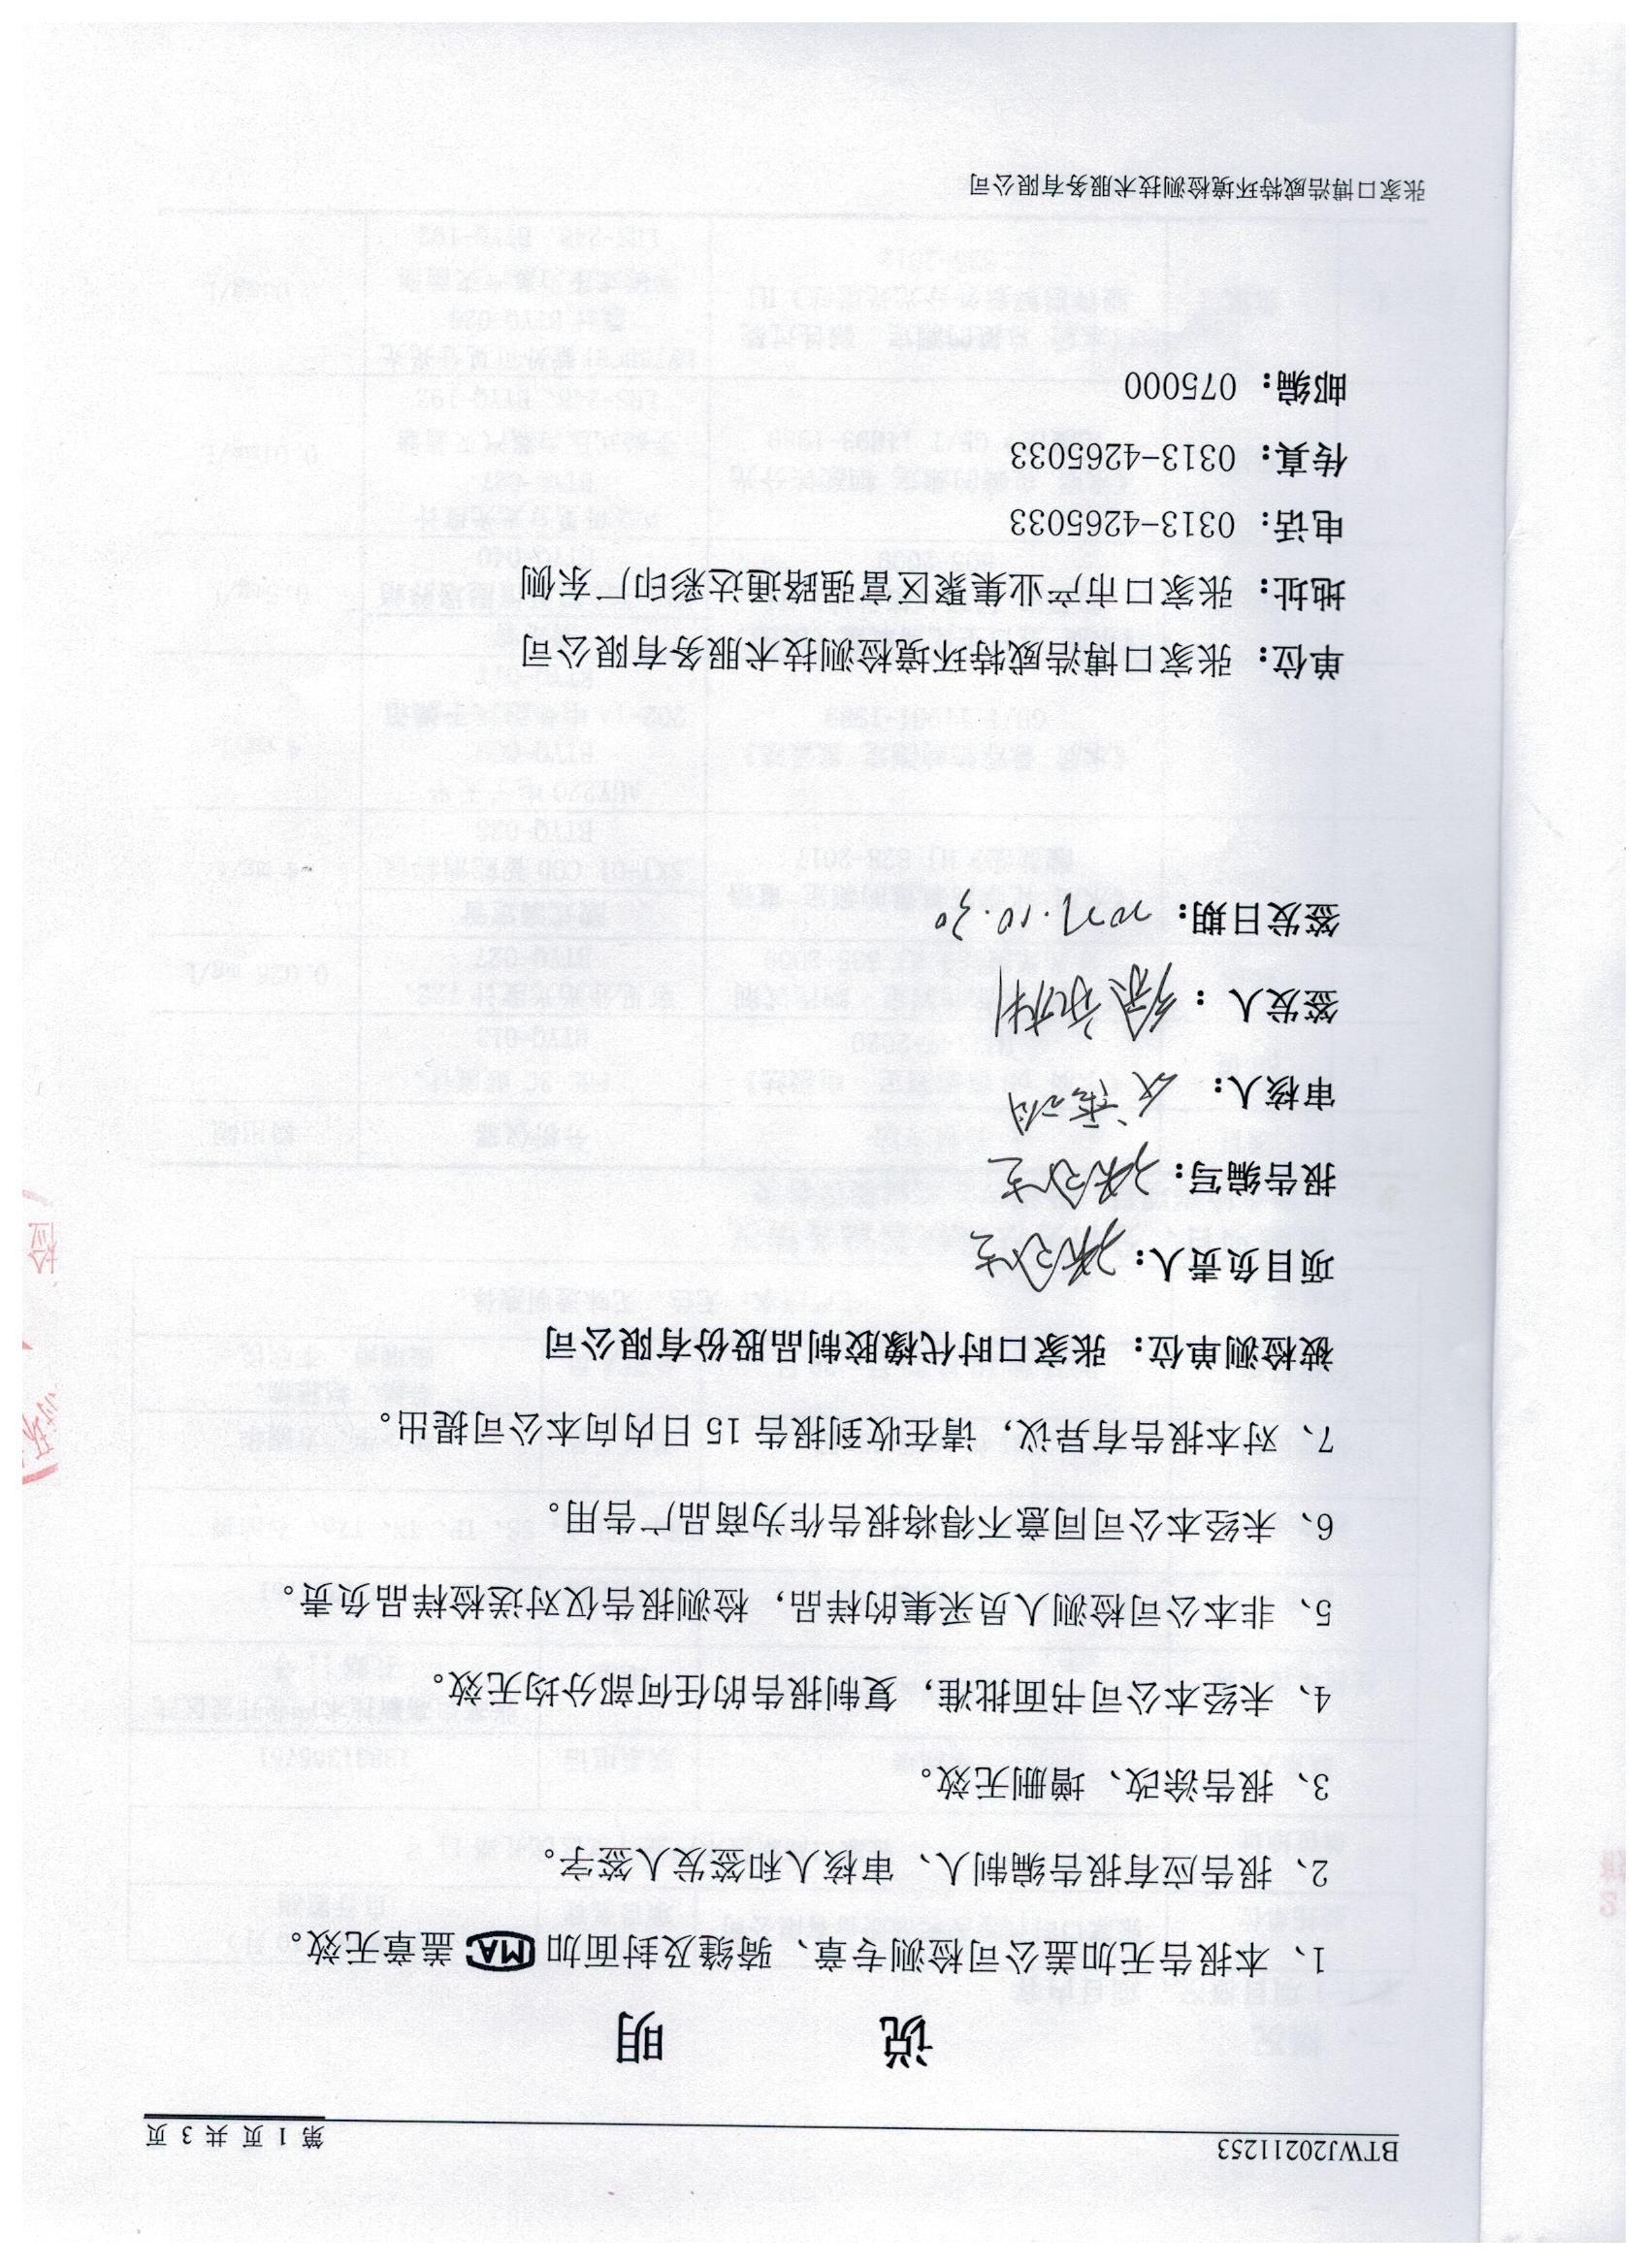 BTWJ20211253
第 1 页 共 3 页
说 明
1、本报告无加盖公司检测专章、骑缝及封面加MA盖章无效。
2、报告应有报告编制人、审核人和签发人签字。
3、报告涂改、增删无效。
4、未经本公司书面批准，复制报告的任何部分均无效。
5、非本公司检测人员采集的样品，检测报告仅对送检样品负责。
6、未经本公司同意不得将报告作为商品广告用。
7、对本报告有异议，请在收到报告 15 日内向本公司提出。
被检测单位：张家口时代橡胶制品股份有限公司
项目负责人：
报告编写：
审核人：
签发人：
签发日期：2021.10.30
单位：张家口博浩威特环境检测技术服务有限公司
地址：张家口市产业集聚区富强路通达彩印厂东侧
电话：0313-4265033
传真：0313-4265033
邮编：075000
张家口博浩威特环境检测技术服务有限公司
检